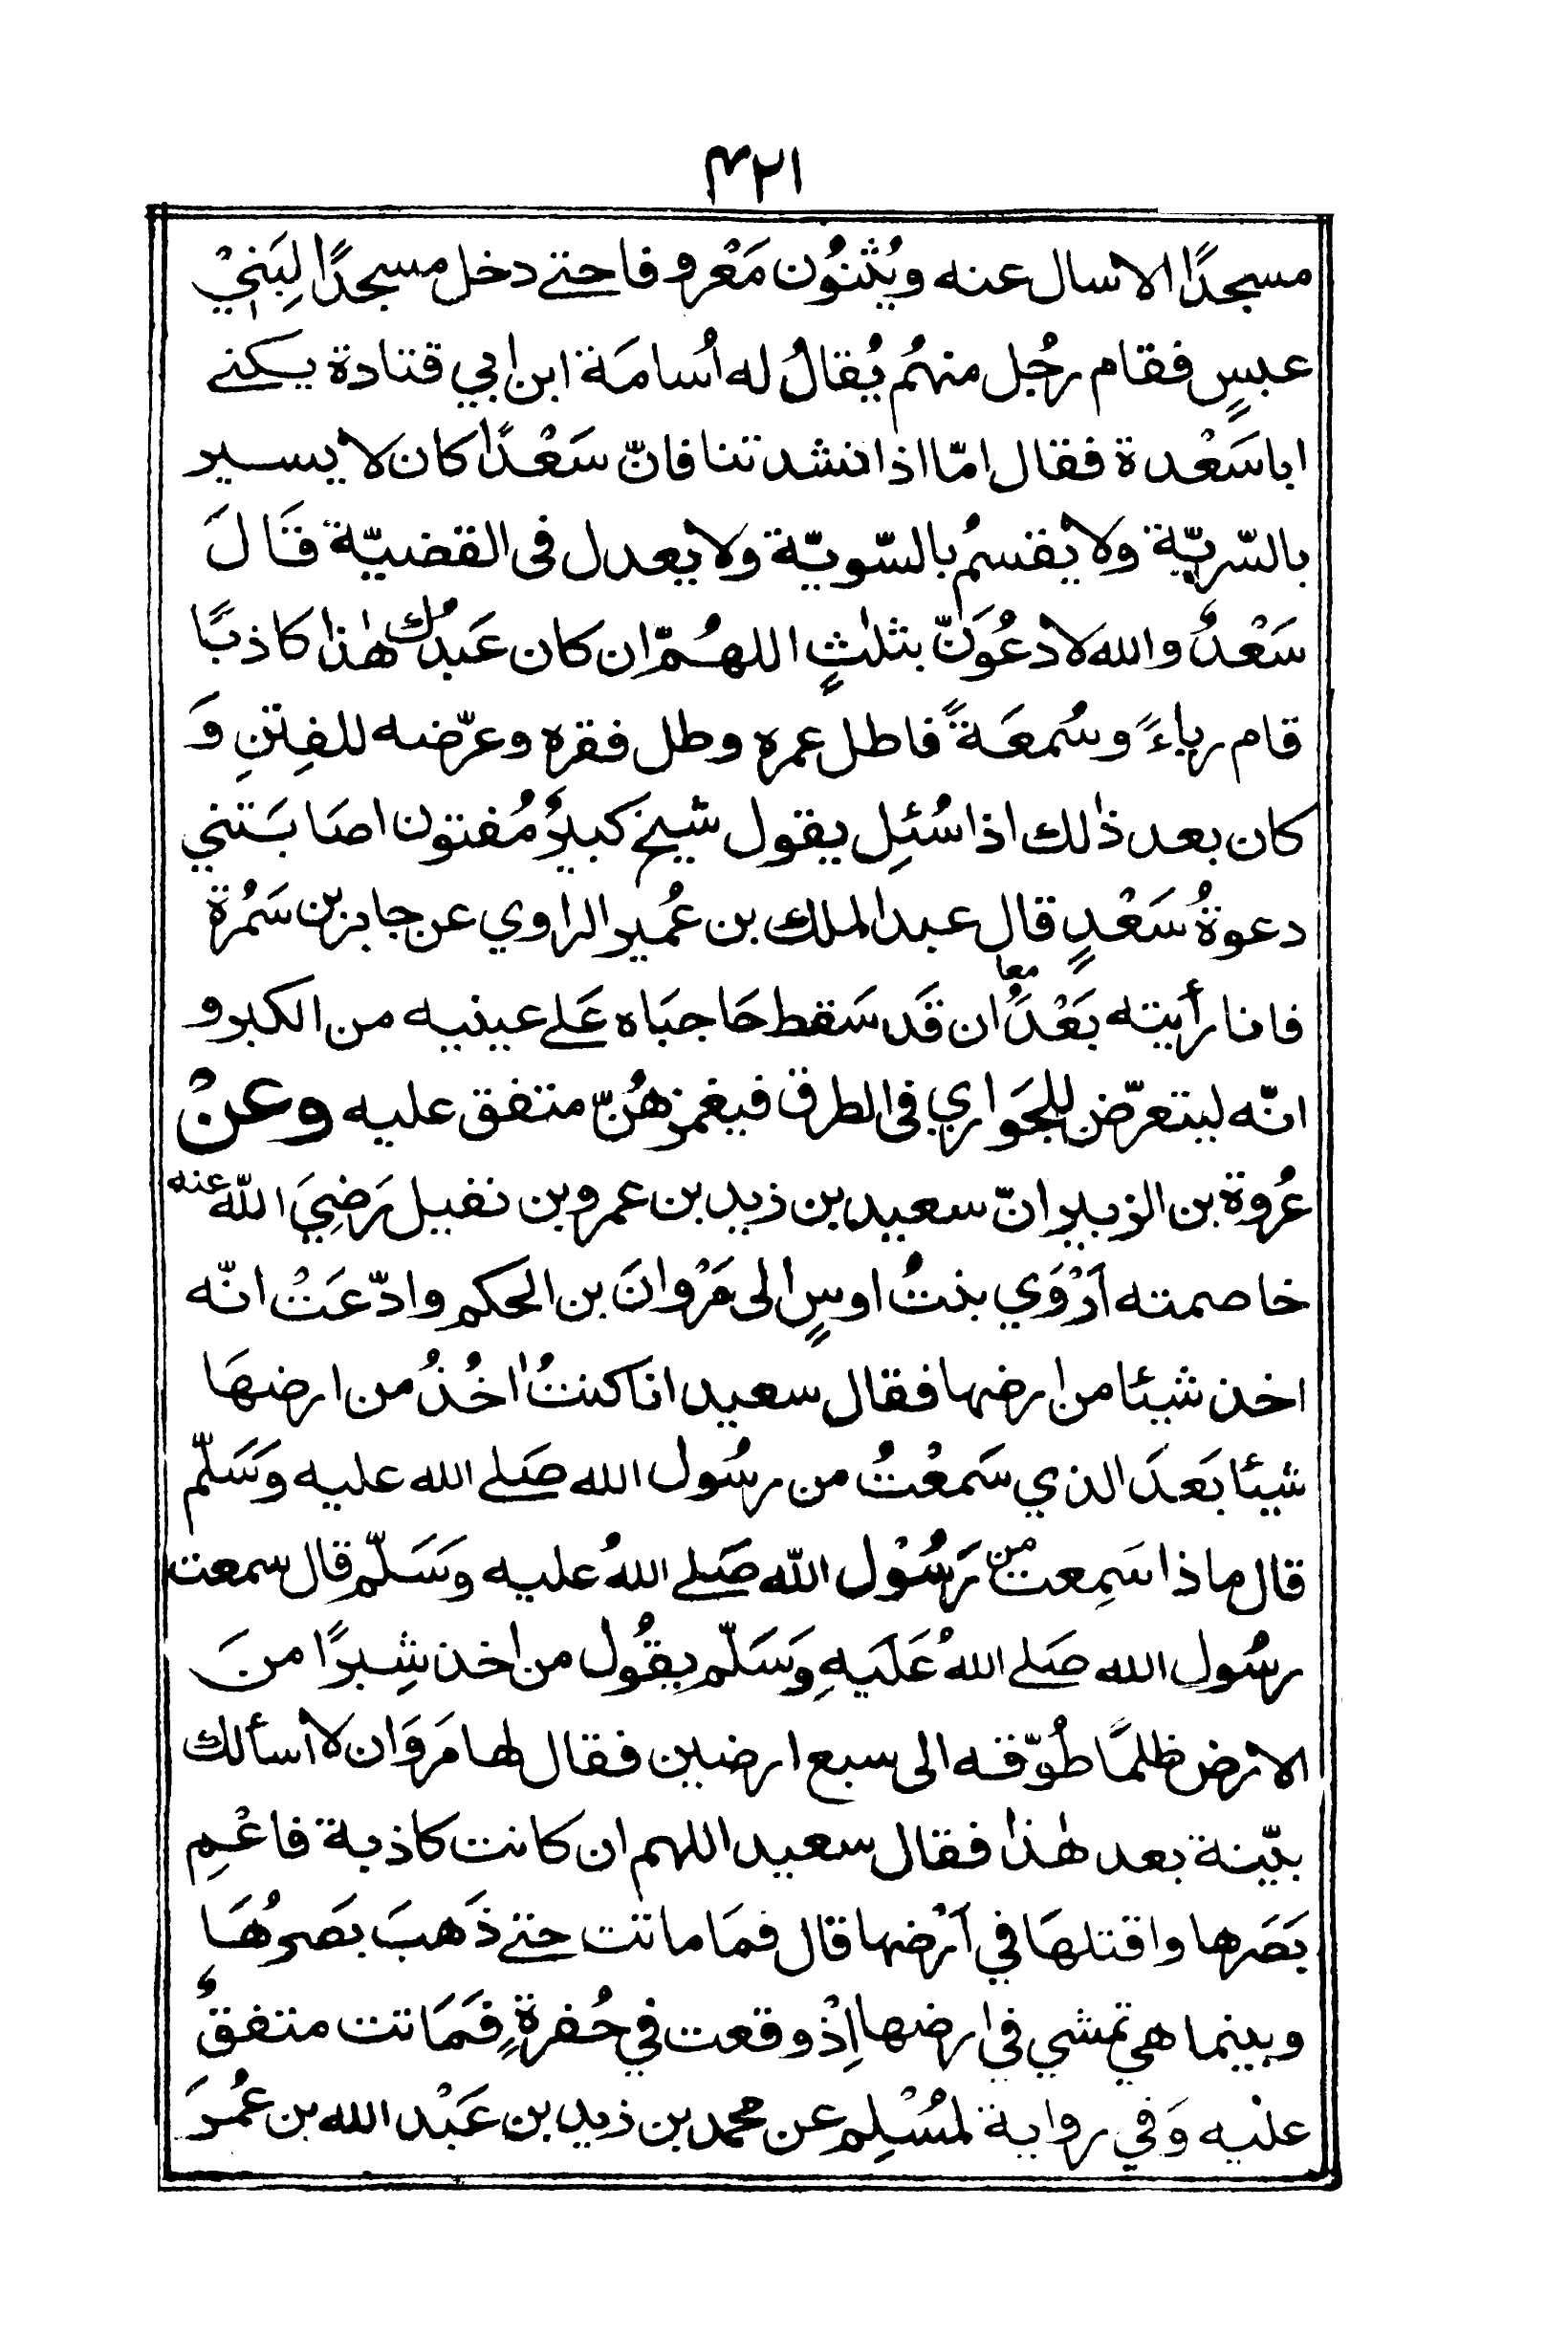 ۴۲۱
مسجدًا الا سال عنه ويُثْنُون مَعْروفا حتے دخل مسجدًا لِبَنِيْ
عبسٍ فقام رجُل منهُم يُقالُ له اُسامَة ابن ابي قتادة يكنے
اباسَعْدة فقال امّا اذا ننشدتنا فانّ سَعْدًا كان لا يسير
بالسّريّة ولا يقسمُ بالسّويّة ولا يعدل فى القضيّة قَالَ
سَعْدٌ والله لادعُوَنّ بثلٰثٍ اللهُمّ ان كان عَبدُك هٰذا كاذبًا
قام رياءً وسُمعَةً فاطل عمره وطل فقره وعرّضه للفِتنِ وَ
كان بعد ذٰلك اذا سُئِل يقول شيخ كبيرٌ مُفتون اصَابَتني
دعوةُ سَعْدٍ قال عبدالملك بن عُمير الراوي عن جابر بن سَمُرة
فانا رأيته بَعْدَُ معا ان قَد سَقط حَاجبَاه عَلے عينيه من الكبر و
انّه ليتعرّض للجَواري فى الطرق فيغمزهُنّ متفق عليه وعنْ
عُروة بن الزبير انّ سعيد بن زيد بن عمرو بن نفيل رَضِيَ اللّه عنه
خاصمته اَرْوَي بنتُ اوسٍ الى مَرْوانَ بن الحكم وادّعَتْ انّه
اخذ شيئا من ارضها فقال سعيد انا كنتُ اٰخُذُ من ارضهَا
شيئا بَعدَ الذي سَمعْتُ من رسُول الله صَلے الله عليه وَسَلّم
قال ماذا سَمِعت من رَسُوْل اللّه صَلے اللهُ عليه وَسَلّم قال سمعت
رسُول الله صَلے اللهُ عَلَيهِ وَسَلّم يقُول من اخذ شِبرًا منَ
الارض ظلمًا طُوّقه الى سبع ارضين فقال لها مَروَان لا أسألك
بيّنة بعد هٰذا فقال سعيد اللهم ان كانت كاذبة فاعْمِ
بَصَرها واقتلهَا في اَرْضها قال فمَا ماتت حتے ذَهبَ بصَرُهَا
وبينما هي تمشي في ارضها اِذْ وقعت في حُفرةٍ فَمَاتت متفقٌ
عليه وَفي رواية لمُسْلِم عن محمد بن زيد بن عَبْد الله بن عُمرَ